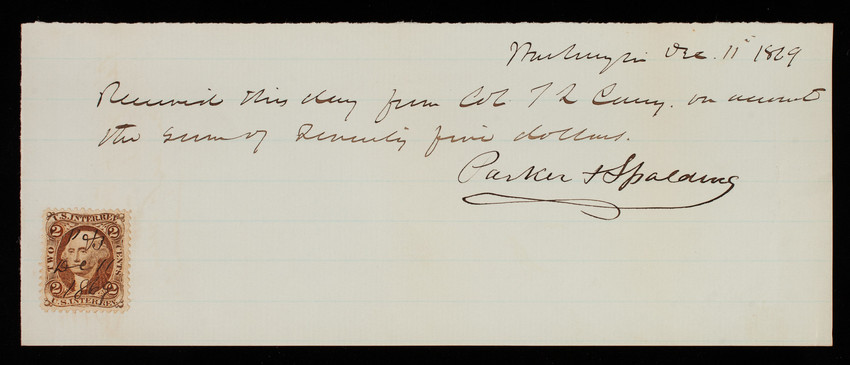 Washington Dec. 11th 1869
Received this day from Col T L Casey. on account
the sum of Seventy five dollars.
Parker & Spalding
U.S. INTER. REV.
2 2
TWO CENTS.
P & S
Dec 11
1869
2 2
U.S. INTER. REV.